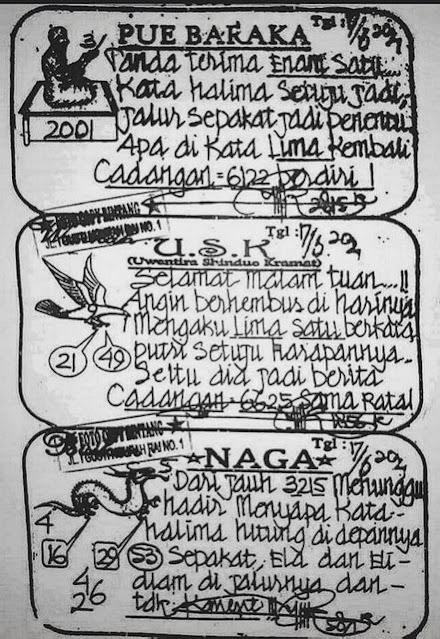 PUE BARAKA
Tgl :
3
2001
Tanda terima Enam Satu...
Kata halima Setuju jadi,
Jalur Sepakat jadi penentu
Apa di Kata Lima Kembali
Cadangan = 6/22 berdiri !
JL. I GUSTI NGURAH RAI NO. 1
U.S.K
Tgl :
(Uwentira Shinduo Kramat)
Selamat malam tuan...!!
Angin berhembus di harinya
Mengaku Lima Satu berkata
putri Setuju Harapannya..
Seltu dia jadi berita
Cadangan = 6625 Sama Rata!
21
49
FOTO COPY BINTANG
JL. I GUSTI NGURAH RAI NO. 1
★NAGA★
Tgl :
Dari jauh 3215 Menunggu
hadir Menyapa Kata-
halima hitung di depannya
Sepakat, Ela dan El-
diam di jalurnya dan-
tak Koment !!
4
16
29
53
46
26